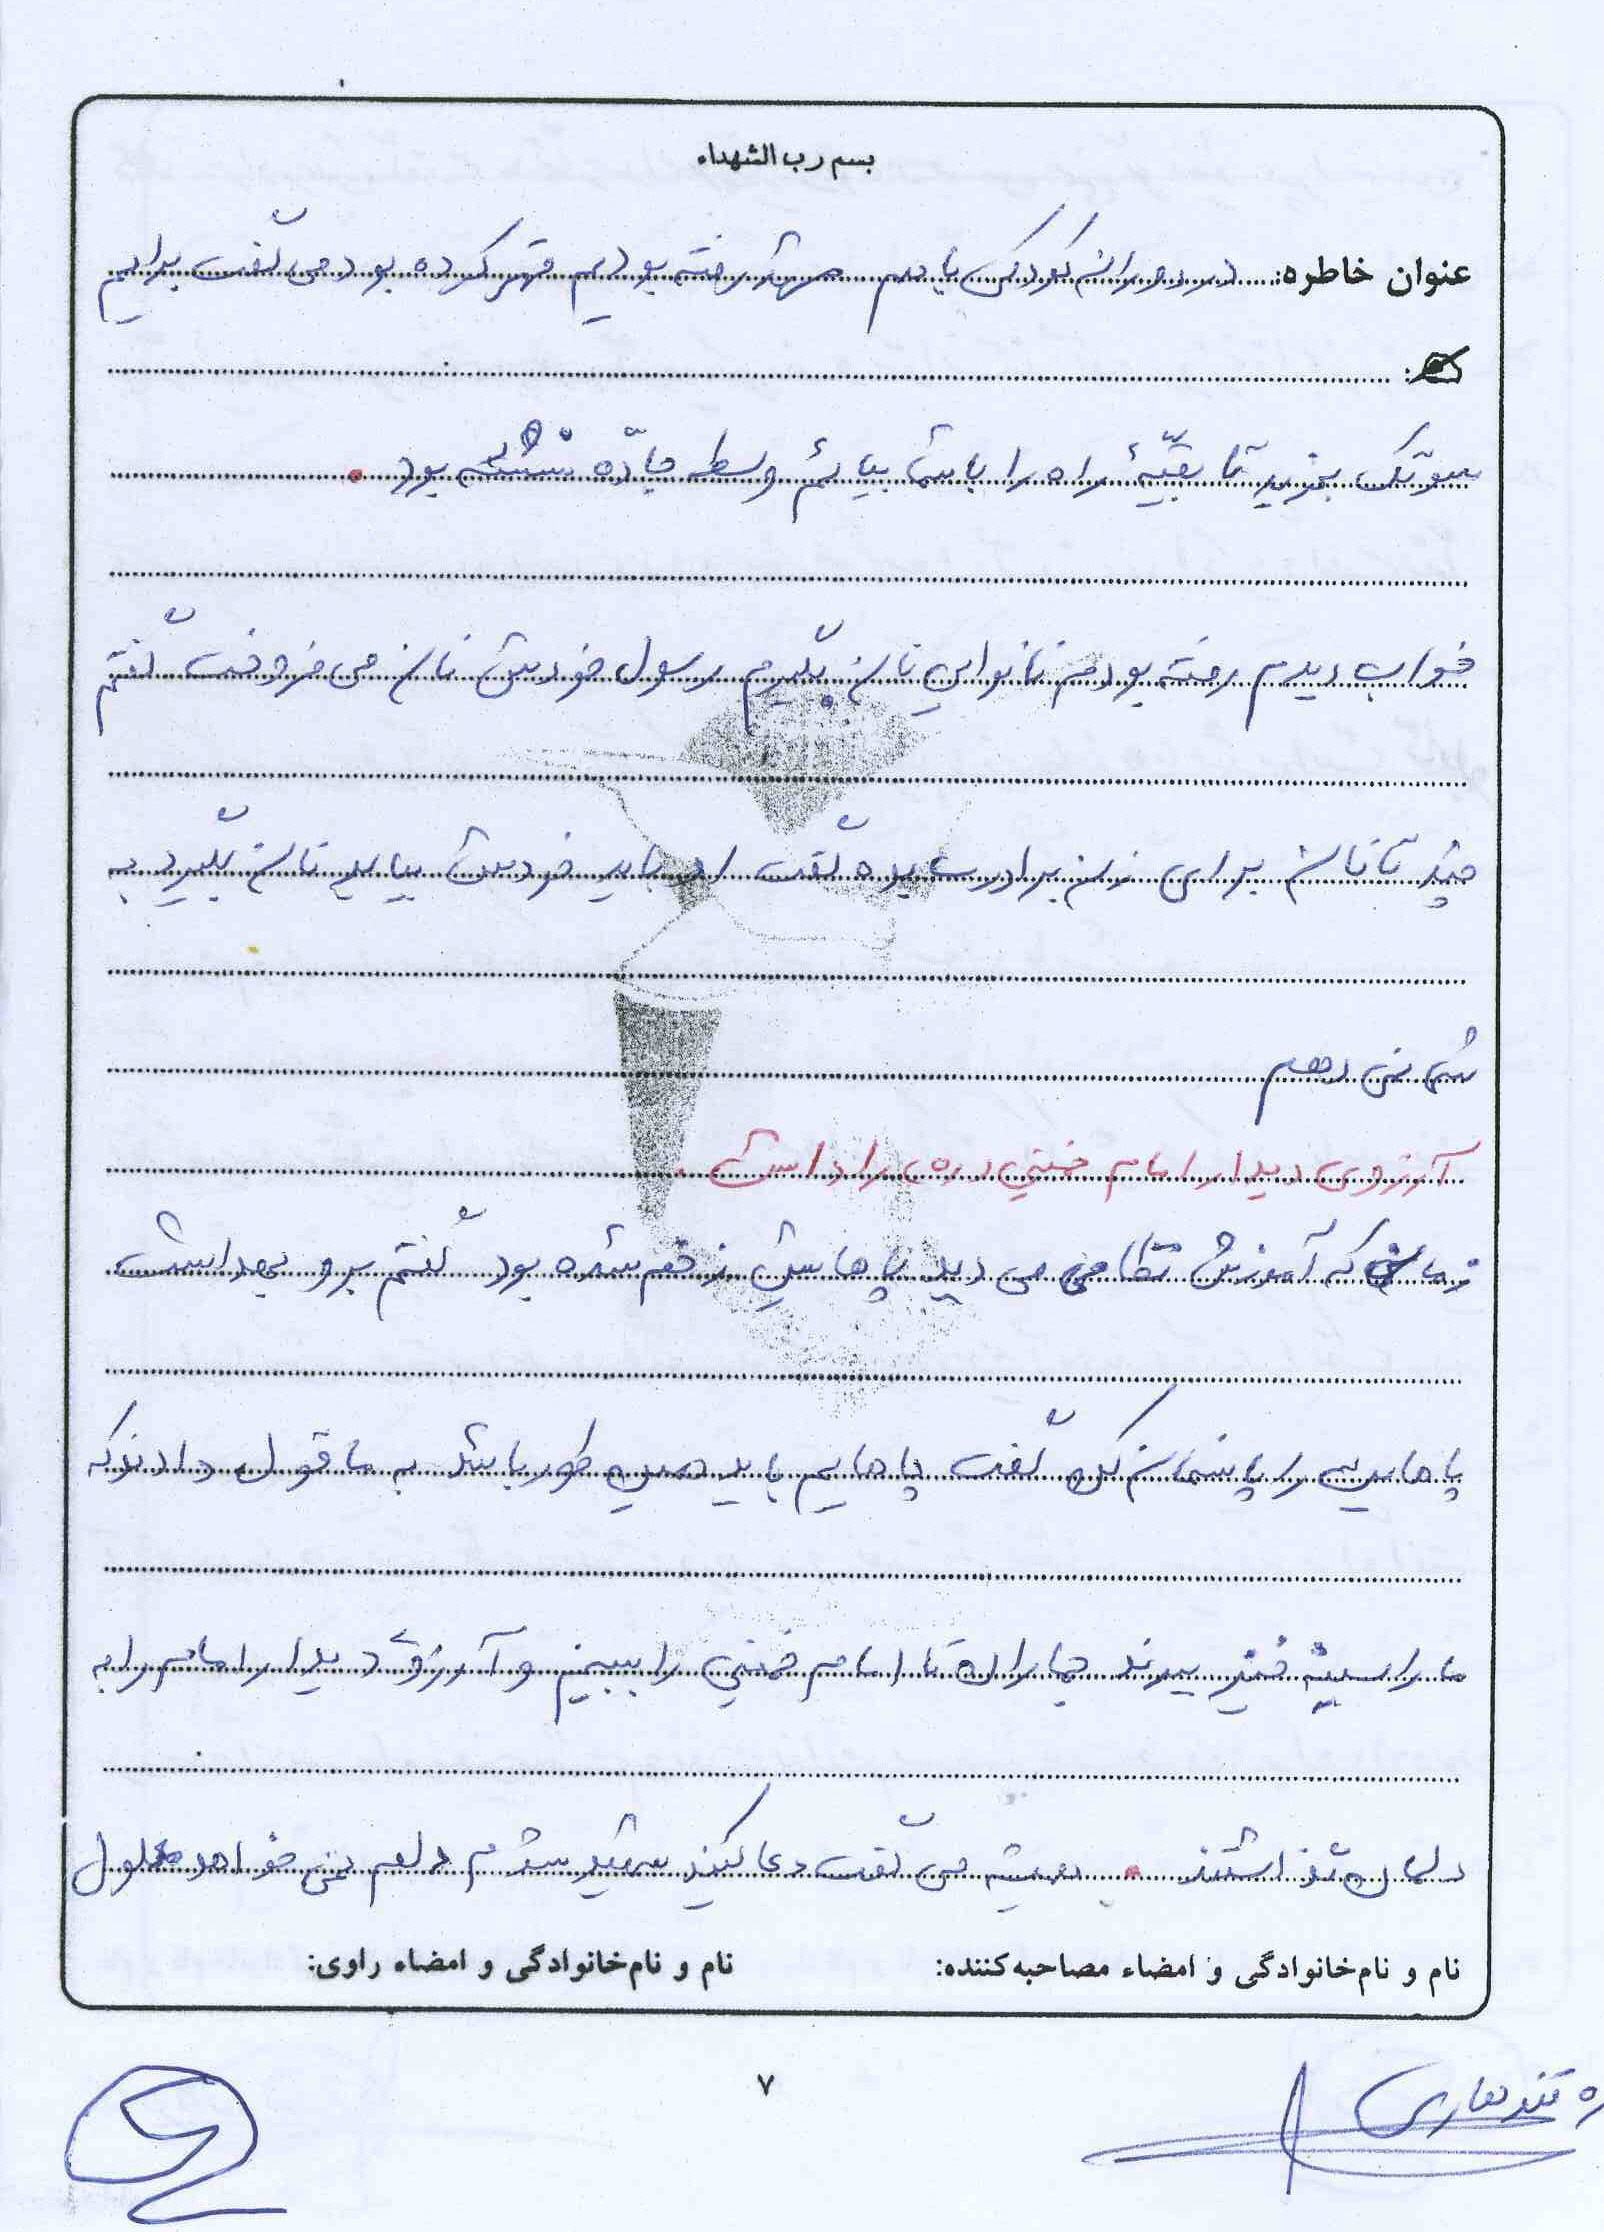 بسم رب الشهداء
عنوان خاطره: در دوران کودکی با هم مشهد رفته بودیم قهر کرده بود می گفت برایم
سوتک بخرید تا بقیّهٔ راه را با شما بیایم وسط جادّه نشسته بود.
خواب دیدم رفته بودم نانوایی نان بگیرم رسول خودش نان می فروخت گفتم
چند تا نان برای زن برادرت بده گفت او باید خودش بیاید نان بگیرد به
شما نمی دهم
آرزوی دیدار امام خمینی (ره) را داشت.
زمانی که آموزش نظامی می دید پاهایش زخم شده بود گفتم برو بهداشت
پاهایت را پانسمان کن گفت پاهایم باید همین طور باشد به ما قول دادند که
ما را سینه خیز ببرند جماران تا امام خمینی را ببینیم و آرزوی دیدار امام را به
دلمان گذاشتند. همیشه می گفت دعا کنید شهید شوم دلم نمی خواهد معلول
نام و نام‌خانوادگی و امضاء مصاحبه‌کننده:
نام و نام‌خانوادگی و امضاء راوی:
۷